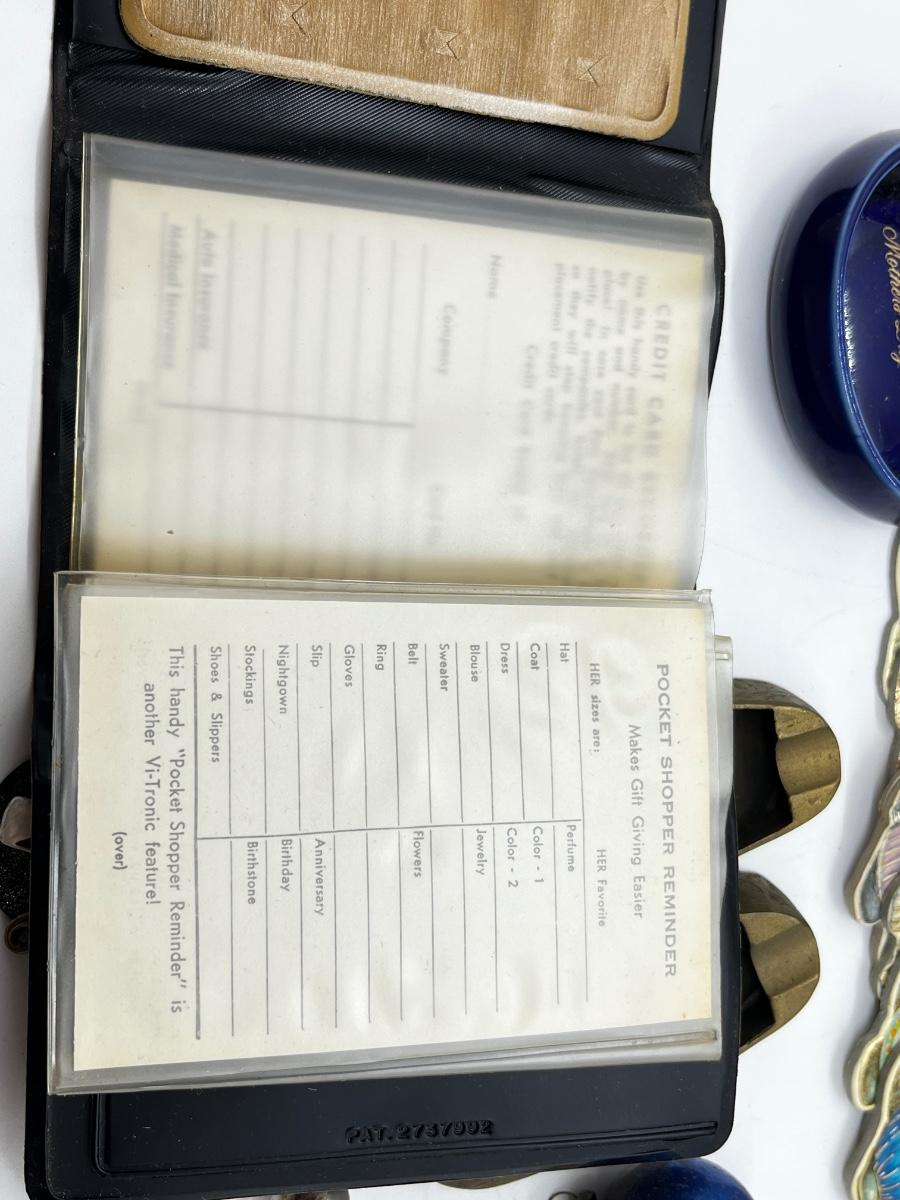 POCKET SHOPPER REMINDER
Makes Gift Giving Easier
HER sizes are: HER Favorite
Hat Perfume
Coat Color - 1
Dress Color - 2
Blouse Jewelry
Sweater
Belt Flowers
Ring
Gloves
Slip Anniversary
Nightgown Birthday
Stockings Birthstone
Shoes & Slippers
This handy "Pocket Shopper Reminder" is
another Vi-Tronic feature!
(over)
CREDIT CARD
Use this handy card to
by name and number
Name
Credit Card
Company
Auto Insurance
Medical Insurance
PAT. 2737992
Mother's Day